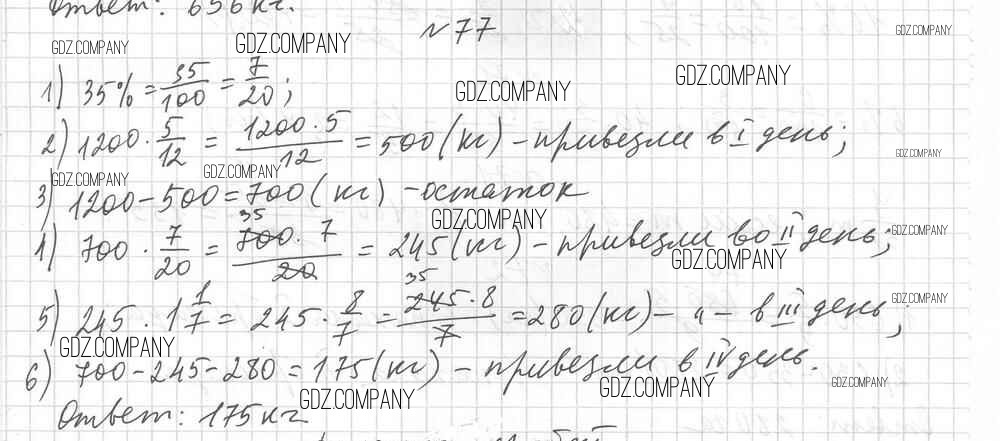 Ответ: 656 кг.
№77
GDZ.COMPANY GDZ.COMPANY GDZ.COMPANY
GDZ.COMPANY GDZ.COMPANY
1) 35% = 35/100 = 7/20;
2) 1200 · 5/12 = 1200·5/12 = 500 (кг) – привезли в I день;
GDZ.COMPANY GDZ.COMPANY GDZ.COMPANY
3) 1200 – 500 = 700 (кг) – остаток
GDZ.COMPANY GDZ.COMPANY
35
4) 700 · 7/20 = 700·7/20 = 245 (кг) – привезли во II день;
GDZ.COMPANY GDZ.COMPANY
35
5) 245 · 1 1/7 = 245 · 8/7 = 245·8/7 = 280 (кг) – " – в III день;
GDZ.COMPANY
6) 700 – 245 – 280 = 175 (кг) – привезли в IV день.
GDZ.COMPANY GDZ.COMPANY GDZ.COMPANY
Ответ: 175 кг